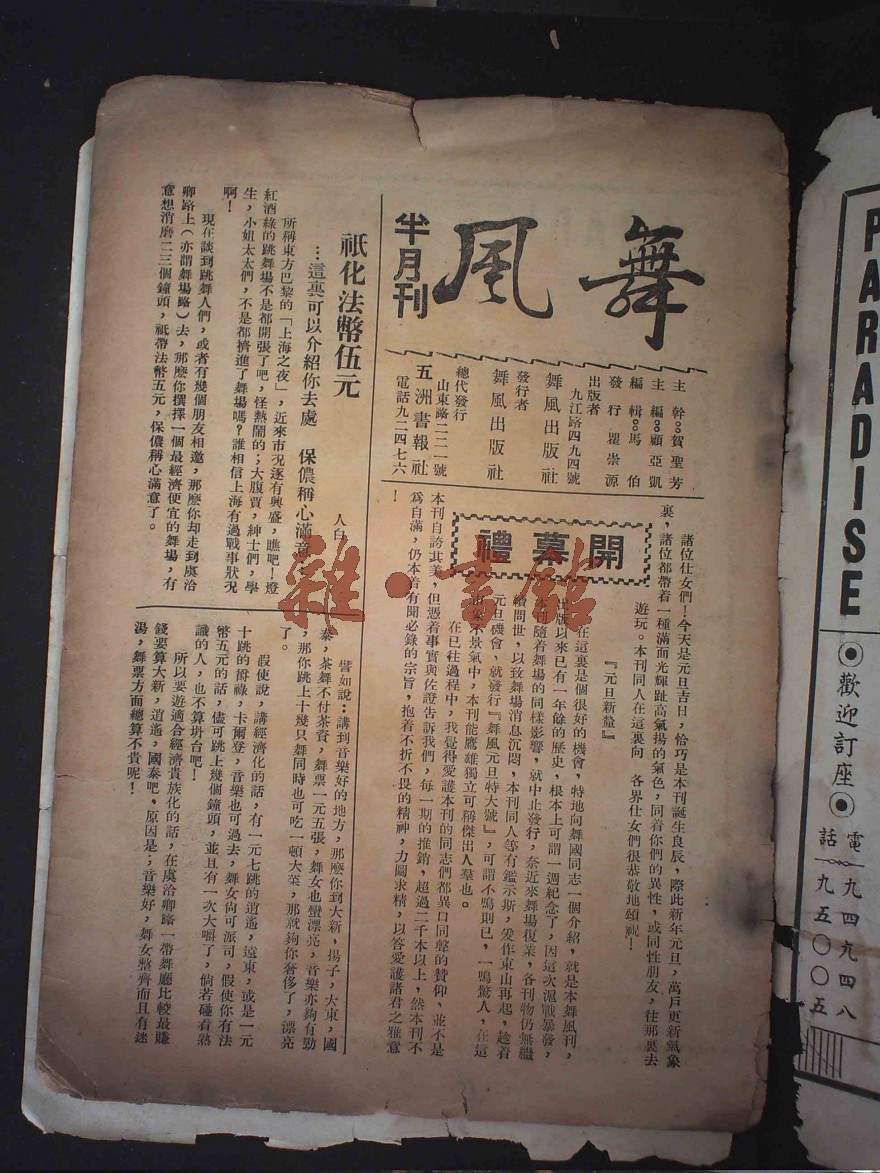 舞風
半月刊
主　幹：賀聖芳
主　編：顧亞凱
編　輯：馬　伯
發　行　瞿崇源
出版者
九江路四九四號
舞風出版社
發行者
舞風出版社
總代發行
山東路二二一號
五洲書報社
電話九二四七六
開幕禮
諸位仕女們！今天是元旦吉日，恰巧是本刊誕生良辰，際此新年元旦，萬戶更新氣象
裏，諸位都帶着一種滿面光輝趾高氣揚的氣色，同着你們的異性，或同性朋友，往那裏去
遊玩。本刊同人在這裏向　各界仕女們很恭敬地頌祝！
『元旦新釐』
在這裏是個很好的機會，特地向舞國同志一個介紹，就是本舞風刊，
出版以來已有一年餘的歷史，根本上可謂一週紀念了，因這次滬戰暴發，
本刊隨着舞場的同樣影響，就中止發行，奈近來舞場復業，各刊物仍無繼
續問世，以致舞場消息沉悶，本刊同人等有鑑示斯，爰作東山再起，趁着
元旦機會，就發行『舞風元旦特大號』，可謂不鳴則已，一鳴驚人，在這
不景氣中，本刊能鷹雄獨立可稱傑出人羣也。
在已往過程中，我覺得愛護本刊的同志們都異口同聲的贊仰，並不是
本刊自誇其美，但憑着事實與佐證告訴我們，每一期的推銷，超過二千本以上，然本刊不
爲自滿，仍本着有聞必錄的宗旨，抱着不折不畏的精神，力圖求精，以答愛護諸君之雅意
！
祇化法幣伍元
…這裏可以介紹你去處　保儂稱心滿意
人白
所稱東方巴黎的「上海之夜」，近來市況逐有興盛，瞧吧！燈
紅酒綠的跳舞場不是都開張了吧，怪熱鬧的；大腹賈，紳士們，學
生，小姐太太們，不是都擠進了舞場嗎？誰相信上海有過戰事狀況
啊！
現在談到跳舞人們，或者有幾個朋友相邀，那麽你却走到虞洽
卿路上（亦謂舞場路）去，那麽你撰擇一個最經濟便宜的舞場，有
意想消磨二三個鐘頭，祇帶法幣五元，保儂稱心滿意了。
譬如說：講到音樂好的地方，那麽你到大新，揚子，大東，國
泰，茶舞不付茶資，舞票一元五張，舞女也蠻漂亮，音樂亦夠有勁
，那你跳上十幾只舞同時也可吃一頓大菜，那就夠你奢侈了，漂亮
了。
假使說，講經濟化的話，有一元七跳的逍遙，遠東，或是一元
十跳的爵祿，卡爾登，音樂也可過去，舞女尙可派司，假使你有法
幣五元的話，儘可跳上幾個鐘頭，並且有一次大嚼了，倘若碰着熟
識的人，也不算坍台吧！
所以要遊適合經濟貴族化的話，在虞洽卿路一帶舞廳比較最賺
錢要算大新，逍遙，國泰吧，原因是；音樂好，舞女整齊而且有迷
湯，舞票方面總算不貴呢！
雜·書館
PARADISE
歡迎訂座
電話
九四九四八
九五〇〇五